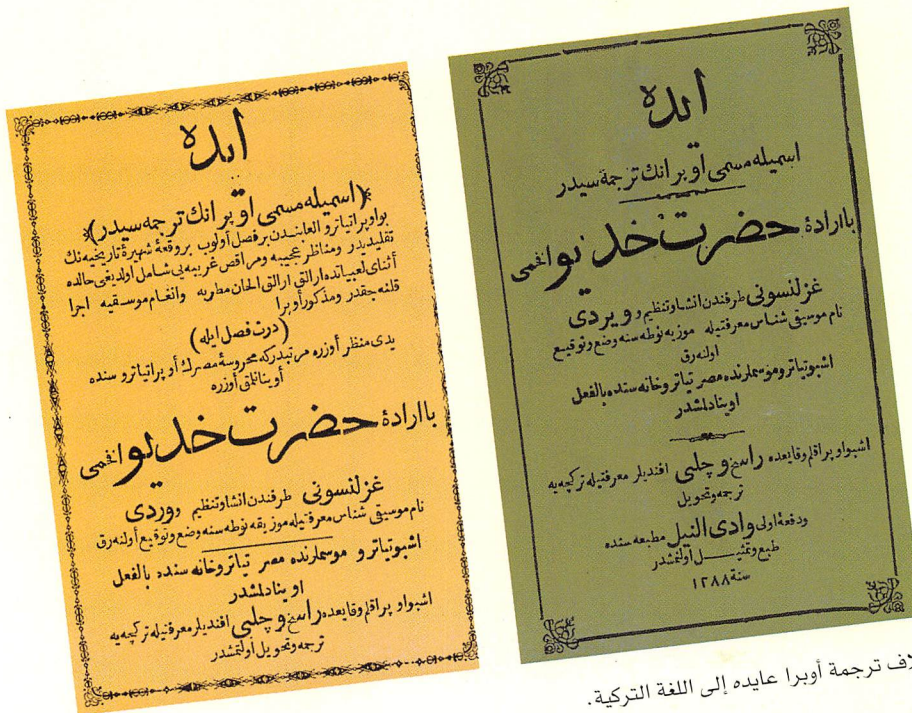 ايده
﴿اسميله مسمى اوپرانك ترجمه سيدر﴾
بواوپراتياترو العابندن برفصل اولوب بروقعۀ شهيرۀ تاريخيه نك
تقليديدر ومناظر عجيبه ومراقص غريبه يى شامل اولديغى حالده
أثناى لعبياتده ارالق ارالق الحان مطربه وانغام موسيقيه اجرا
قلنه جقدر ومذكور أوپرا
(درت فصل ايله)
يدى منظر أوزره مرتبدركه محروسۀ مصرك أوپراتياترو سنده
أويناتلمق أوزره
باارادۀ حضرت خديو افخمى
غزلنسونى طرفندن انشاوتنظيم و وردى
نام موسيقى شناس معرفتيله موزيقه نوطه سنه وضع وتوقيع أولنه رق
اشبوتياترو موسملرنده مصر تياتروخانه سنده بالفعل
اوينادلمشدر
اشبواوپرا قلم وقايعده راسخ و چلبى افنديلر معرفتيله تركچه يه
ترجمه وتحويل اولنمشدر
ايده
اسميله مسمى اوپرانك ترجمه سيدر
باارادۀ حضرت خديو افخمى
غزلنسونى طرفندن انشاوتنظيم و ويردى
نام موسيقى شناس معرفتيله موزيه نوطه سنه وضع وتوقيع
اولنه رق
اشبوتياتروموسملرنده مصر تياتروخانه سنده بالفعل
اوينادلمشدر
اشبواوپرا قلم وقايعده راسخ و چلبى افنديلر معرفتيله تركچه يه
ترجمه وتحويل
ودفعۀ اولى وادى النيل مطبعه سنده
طبع وتمثيل أولنمشدر
سنة ١٢٨٨
لاف ترجمة أوبرا عايده إلى اللغة التركية.